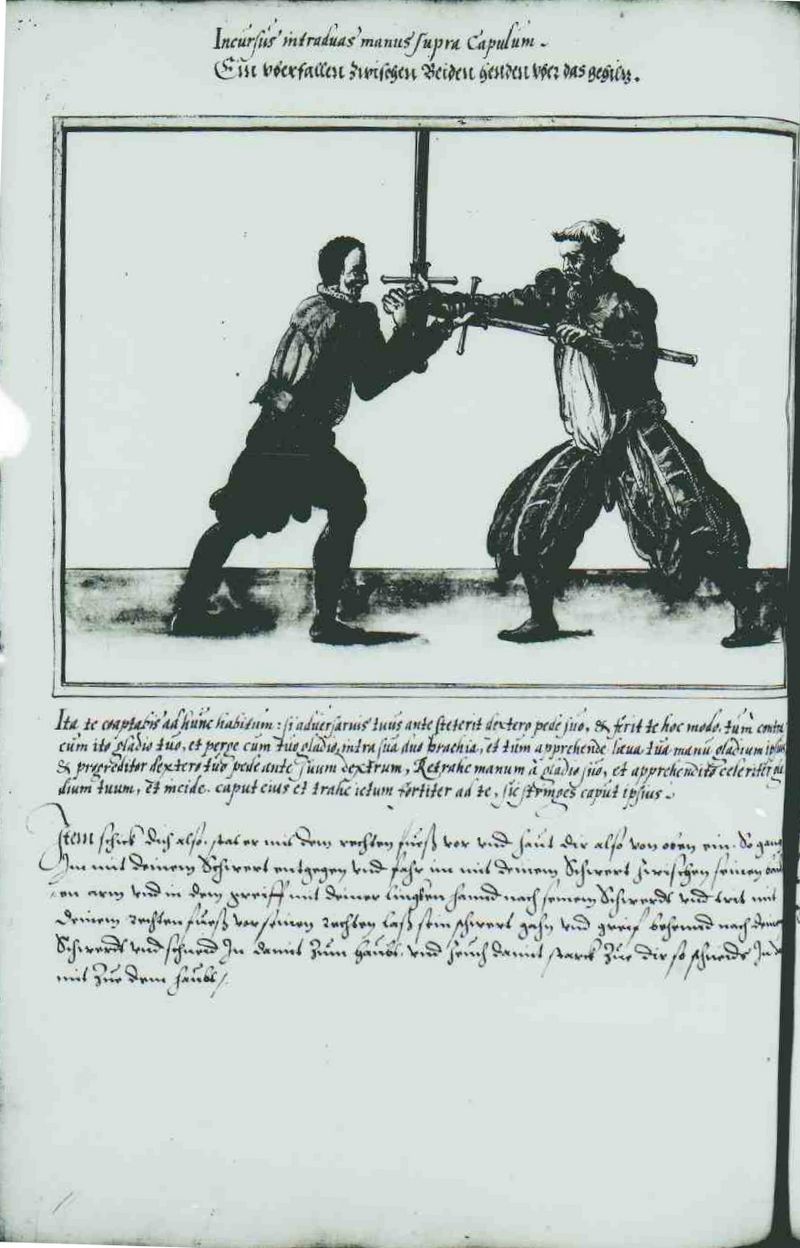 Incursus intra duas manus supra Capulum.
Ein vberfallen zwischen Beiden henden vber das gehiltz.
Ita te coaptabis ad hunc habitum: si adversarius tuus ante steterit dextero pede suo, & ferit te hoc modo, tum contra
eum ito gladio tuo, et perge cum tuo gladio, intra sua duo brachia, et tum apprehende laeva tua manu gladium ipsius
& progreditor dextero tuo pede ante suum dextrum, Retrahe manum à gladio suo, et apprehendito celeriter
dium tuum, et incide caput eius et trahe ictum fortiter ad te, sic stringes caput ipsius.
Item schick dich also, stat er mit dem rechten fuess vor vnd haut dir also von oben ein. So gang
Im mit deinem Schwert entgegen vnd fahr im mit deinem Schwert zwischen seinen
en arm vnd in dem greiff mit deiner lingken hannd nach seinem Schwerdt vnd trit mit
deinem rechten fuess vor seinen rechten lass sein schwert gehn vnd greif behennd nach
Schwerdt vnd schneid In damit zum haubt, vnd zeuch damit starck zue dir so schneids In
mit zue dem haubt.